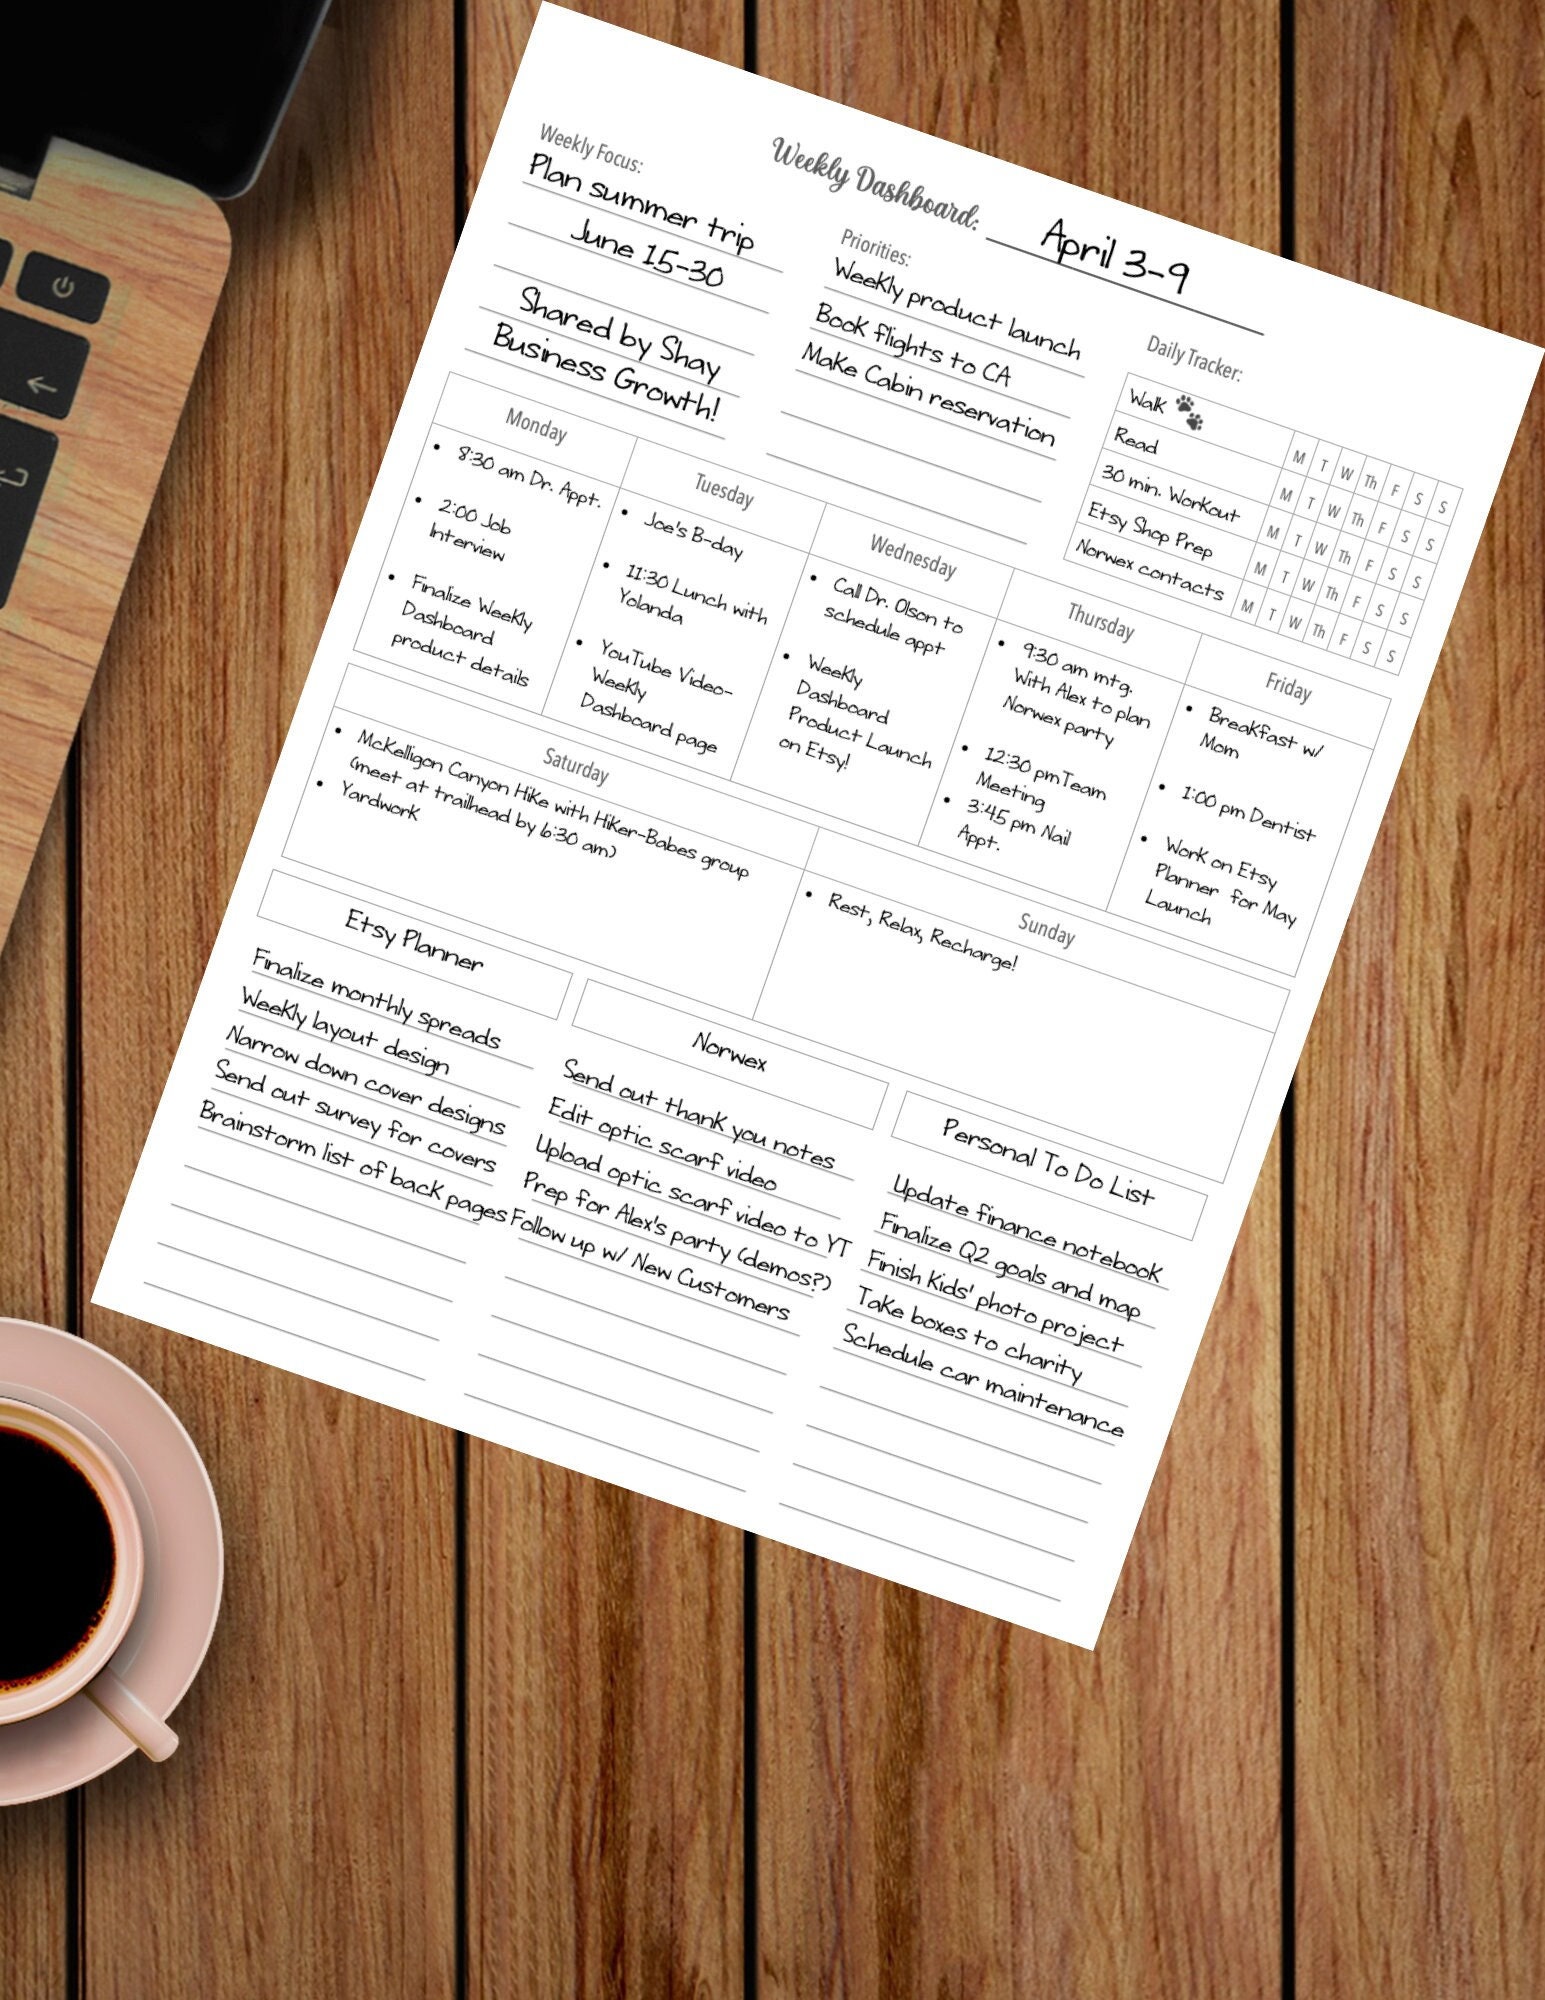 Weekly Dashboard: April 3-9
Weekly Focus:
Plan summer trip
June 15-30
Shared by Shay
Business Growth!
Priorities:
Weekly product launch
Book flights to CA
Make Cabin reservation
Daily Tracker:
Walk M T W Th F S S
Read M T W Th F S S
30 min. Workout M T W Th F S S
Etsy Shop Prep M T W Th F S S
Norwex contacts M T W Th F S S
Monday
• 8:30 am Dr. Appt.
• 2:00 Job
Interview
• Finalize Weekly
Dashboard
product details
Tuesday
• Joe's B-day
• 11:30 Lunch with
Yolanda
• YouTube Video-
Weekly
Dashboard page
Wednesday
• Call Dr. Olson to
schedule appt
• Weekly
Dashboard
Product Launch
on Etsy!
Thursday
• 9:30 am mtg.
With Alex to plan
Norwex party
• 12:30 pmTeam
Meeting
• 3:45 pm Nail
Appt.
Friday
• Breakfast w/
Mom
• 1:00 pm Dentist
• Work on Etsy
Planner for May
Launch
Saturday
• McKelligon Canyon Hike with Hiker-Babes group
(meet at trailhead by 6:30 am)
• Yardwork
Sunday
• Rest, Relax, Recharge!
Etsy Planner
Finalize monthly spreads
Weekly layout design
Narrow down cover designs
Send out survey for covers
Brainstorm list of back pages
Norwex
Send out thank you notes
Edit optic scarf video
Upload optic scarf video to YT
Prep for Alex's party (demos?)
Follow up w/ New Customers
Personal To Do List
Update finance notebook
Finalize Q2 goals and map
Finish Kids' photo project
Take boxes to charity
Schedule car maintenance